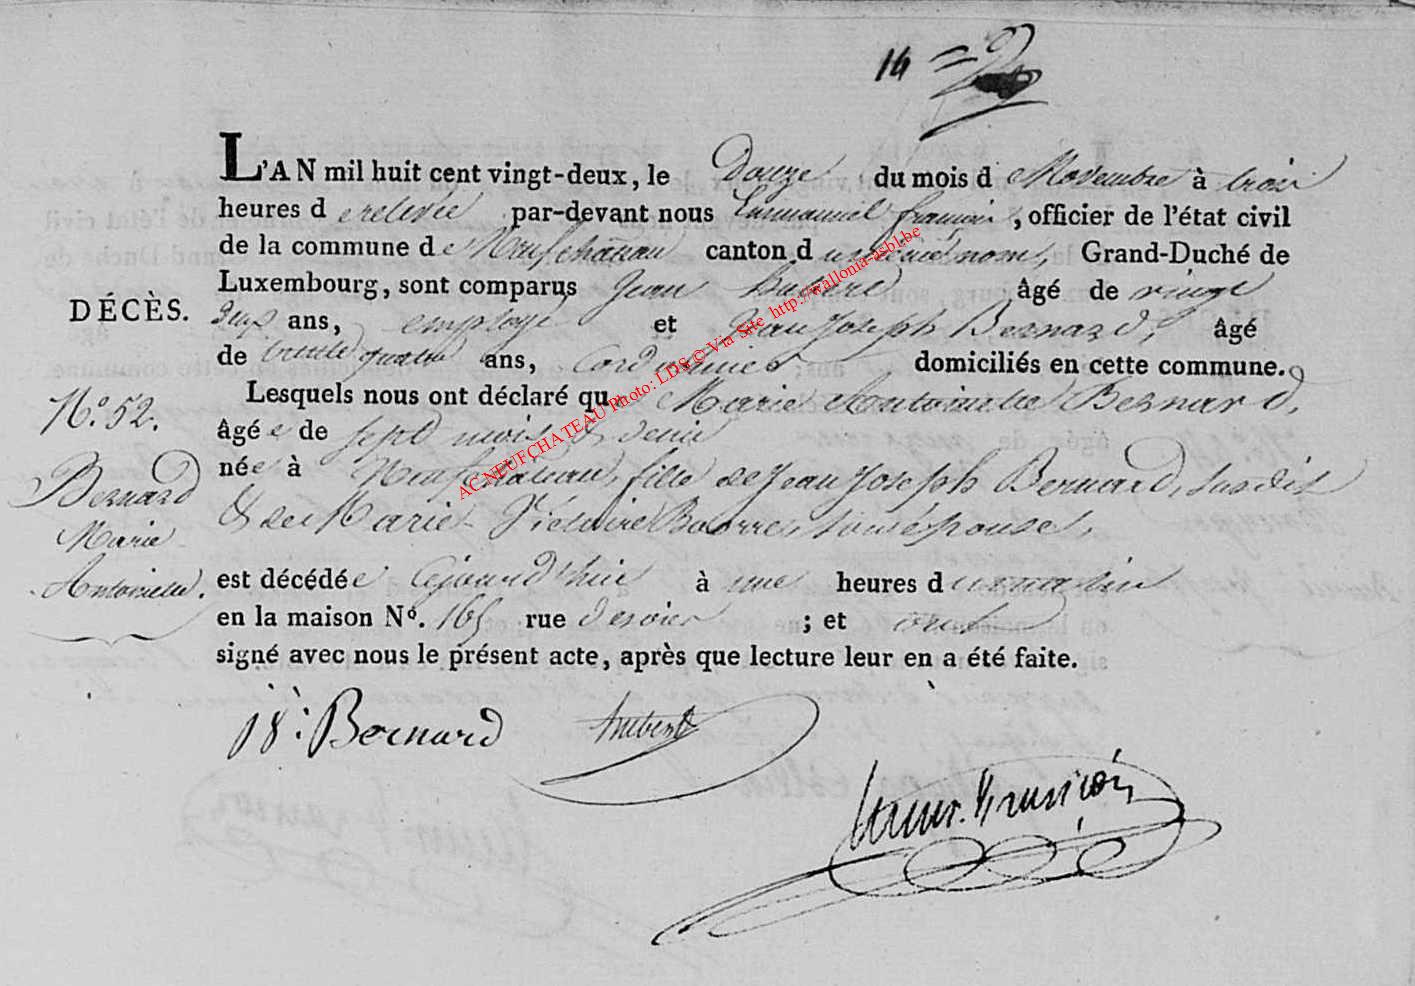 14
L'AN mil huit cent vingt-deux, le Douze du mois d e Novembre à trois
heures d e relevée par-devant nous Emmanuel françois, officier de l'état civil
de la commune d e Neufchateau canton d u même nom, Grand-Duché de
DÉCÈS.
Luxembourg, sont comparus Jean hubert âgé de vingt
deux ans, employé et Jean Joseph Bernard, âgé
de trente quatre ans, Cordonnier domiciliés en cette commune.
Lesquels nous ont déclaré que Marie Antoinette Bernard,
âgée de sept mois & demi
née à Neufchateau, fille de Jean Joseph Bernard, susdit
& de Marie Victoire son épouse,
est décédée cejourd'hui à une heures d u matin
en la maison Nº. 165 rue ; et ont
signé avec nous le présent acte, après que lecture leur en a été faite.
Nº. 52.
Bernard
Marie
Antoinette.
JJ: Bernard
hubert
Emm. françois
AC NEUFCHATEAU Photo: LDS © Via Site http://wallonia-asbl.be